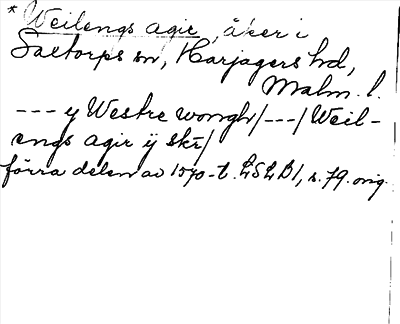 * Weilengs agir, åker i
Saltorps sn, Harjagers hd,
Malm. l.
--- y Westre wongh/---/Weil-
engs agir ÿ skr/
förra delen av 1570-t. LSLB1, s. 79. orig.